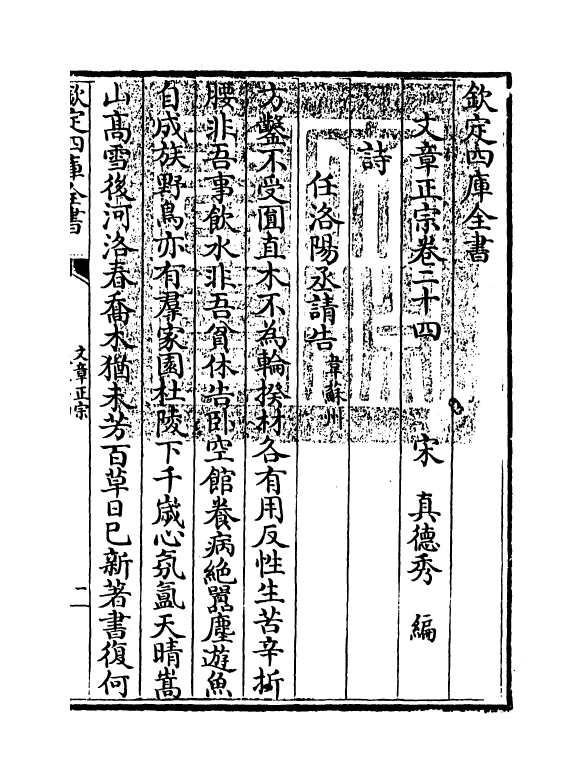 欽定四庫全書
文章正宗卷二十四
宋 真德秀 編
詩
任洛陽丞請告 韋蘇州
方鑿不受圓直木不為輪揆材各有用反性生苦辛折
腰非吾事飲水非吾貧休告卧空館養病絶囂塵遊魚
自成族野鳥亦有羣家園杜陵下千歲心氛氳天晴嵩
山高雪後河洛春喬木猶未芳百草日已新著書復何
欽定四庫全書
文章正宗